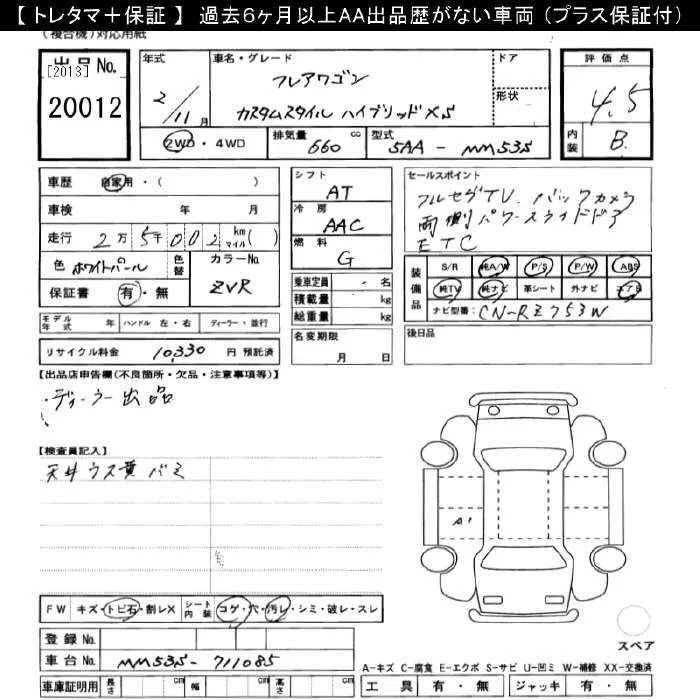 【 トレタマ＋保証 】 過去6ヶ月以上AA出品歴がない車両（プラス保証付）
(複合機)対応用紙
出品No.
[2013]
20012
年式
2/11月
車名・グレード
フレアワゴン
カスタムスタイル ハイブリッドXS
ドア
形状
評価点
4.5
内装
B
2WD・4WD
排気量 660 cc
型式 5AA - MM53S
車歴 自家用・( )
車検 年 月
走行 2万5千002 km マイル( )
色 ホワイトパール
色替
カラーNo. ZVR
保証書 有・無
シフト
AT
冷房
AAC
燃料
G
乗車定員 - 名
積載量 kg
総重量 kg
セールスポイント
フルセグTV. バックカメラ
両側パワースライドドア
ETC
装備品
S/R 純A/W P/S P/W ABS
純TV 純ナビ 革シート 外ナビ エアB
ナビ型番: CN-RZ753W
モデル年式 年 ハンドル 左・右 ディーラー・並行
リサイクル料金 10,330 円 預託済
名変期限
月 日
後日品
【出品店申告欄(不良箇所・欠品・注意事項等)】
・ディーラー出品
【検査員記入】
天井ウス黄バミ
A1
FW キズ・トビ石・割レX シート内装 コゲ・穴・汚レ・シミ・破レ・スレ
登録No.
車台No. MM53S-711085
車庫証明用 長さ cm 幅 cm 高さ cm
スペア
A-キズ C-腐食 E-エクボ S-サビ U-凹ミ W-補修 XX-交換済
工具 有・無 ジャッキ 有・無